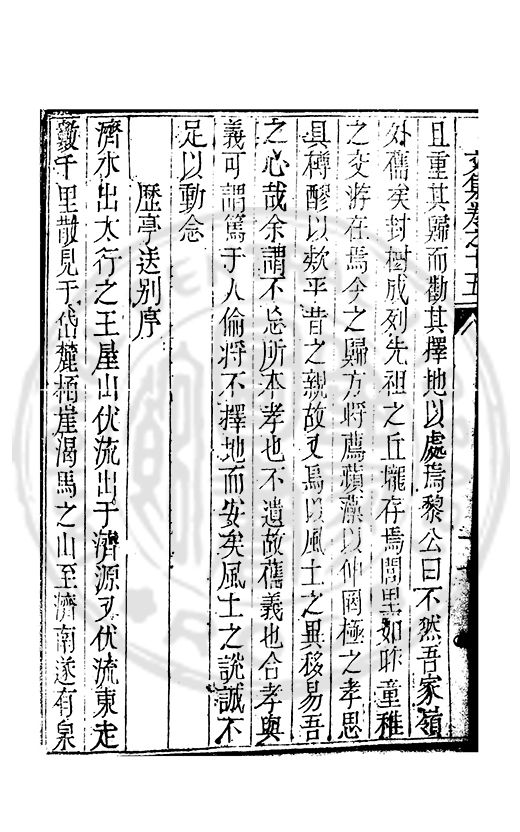 文集卷之十五
且重其歸而勸其擇地以處焉黎公曰不然吾家嶺
外舊矣封樹成列先祖之丘壠存焉閭里如昨童稚
之交游在焉今之歸方將薦蘋藻以伸罔極之孝思
具樽醪以欵平昔之親故又焉以風土之異移易吾
之心哉余謂不忘所本孝也不遺故舊義也合孝與
義可謂篤于人倫將不擇地而安矣風土之說誠不
足以動念
歷亭送别序
濟水出太行之王屋山伏流出于濟源又伏流東走
數千里散見于岱麓栢崖渴馬之山至濟南遂有泉